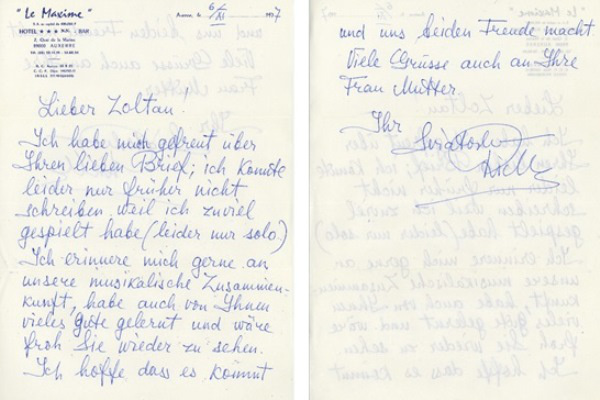 "Le Maxime"
HOTEL ★★★ BAR
2, Quai de la Marine
89000 AUXERRE
Auxerre, le 6/XI 1977
Lieber Zoltan!
Ich habe mich gefreut über
Ihren lieben Brief; ich konnte
leider nur früher nicht
schreiben weil ich zuviel
gespielt habe (leider nur solo)
Ich erinnere mich gerne an
unsere musikalische Zusammen-
kunft, habe auch von Ihnen
vieles gute gelernt und wäre
froh Sie wieder zu sehen.
Ich hoffe dass es kommt
und uns beiden Freude macht
Viele Grüsse auch an Ihre
Frau Mutter.
Ihr
"Le Maxime"